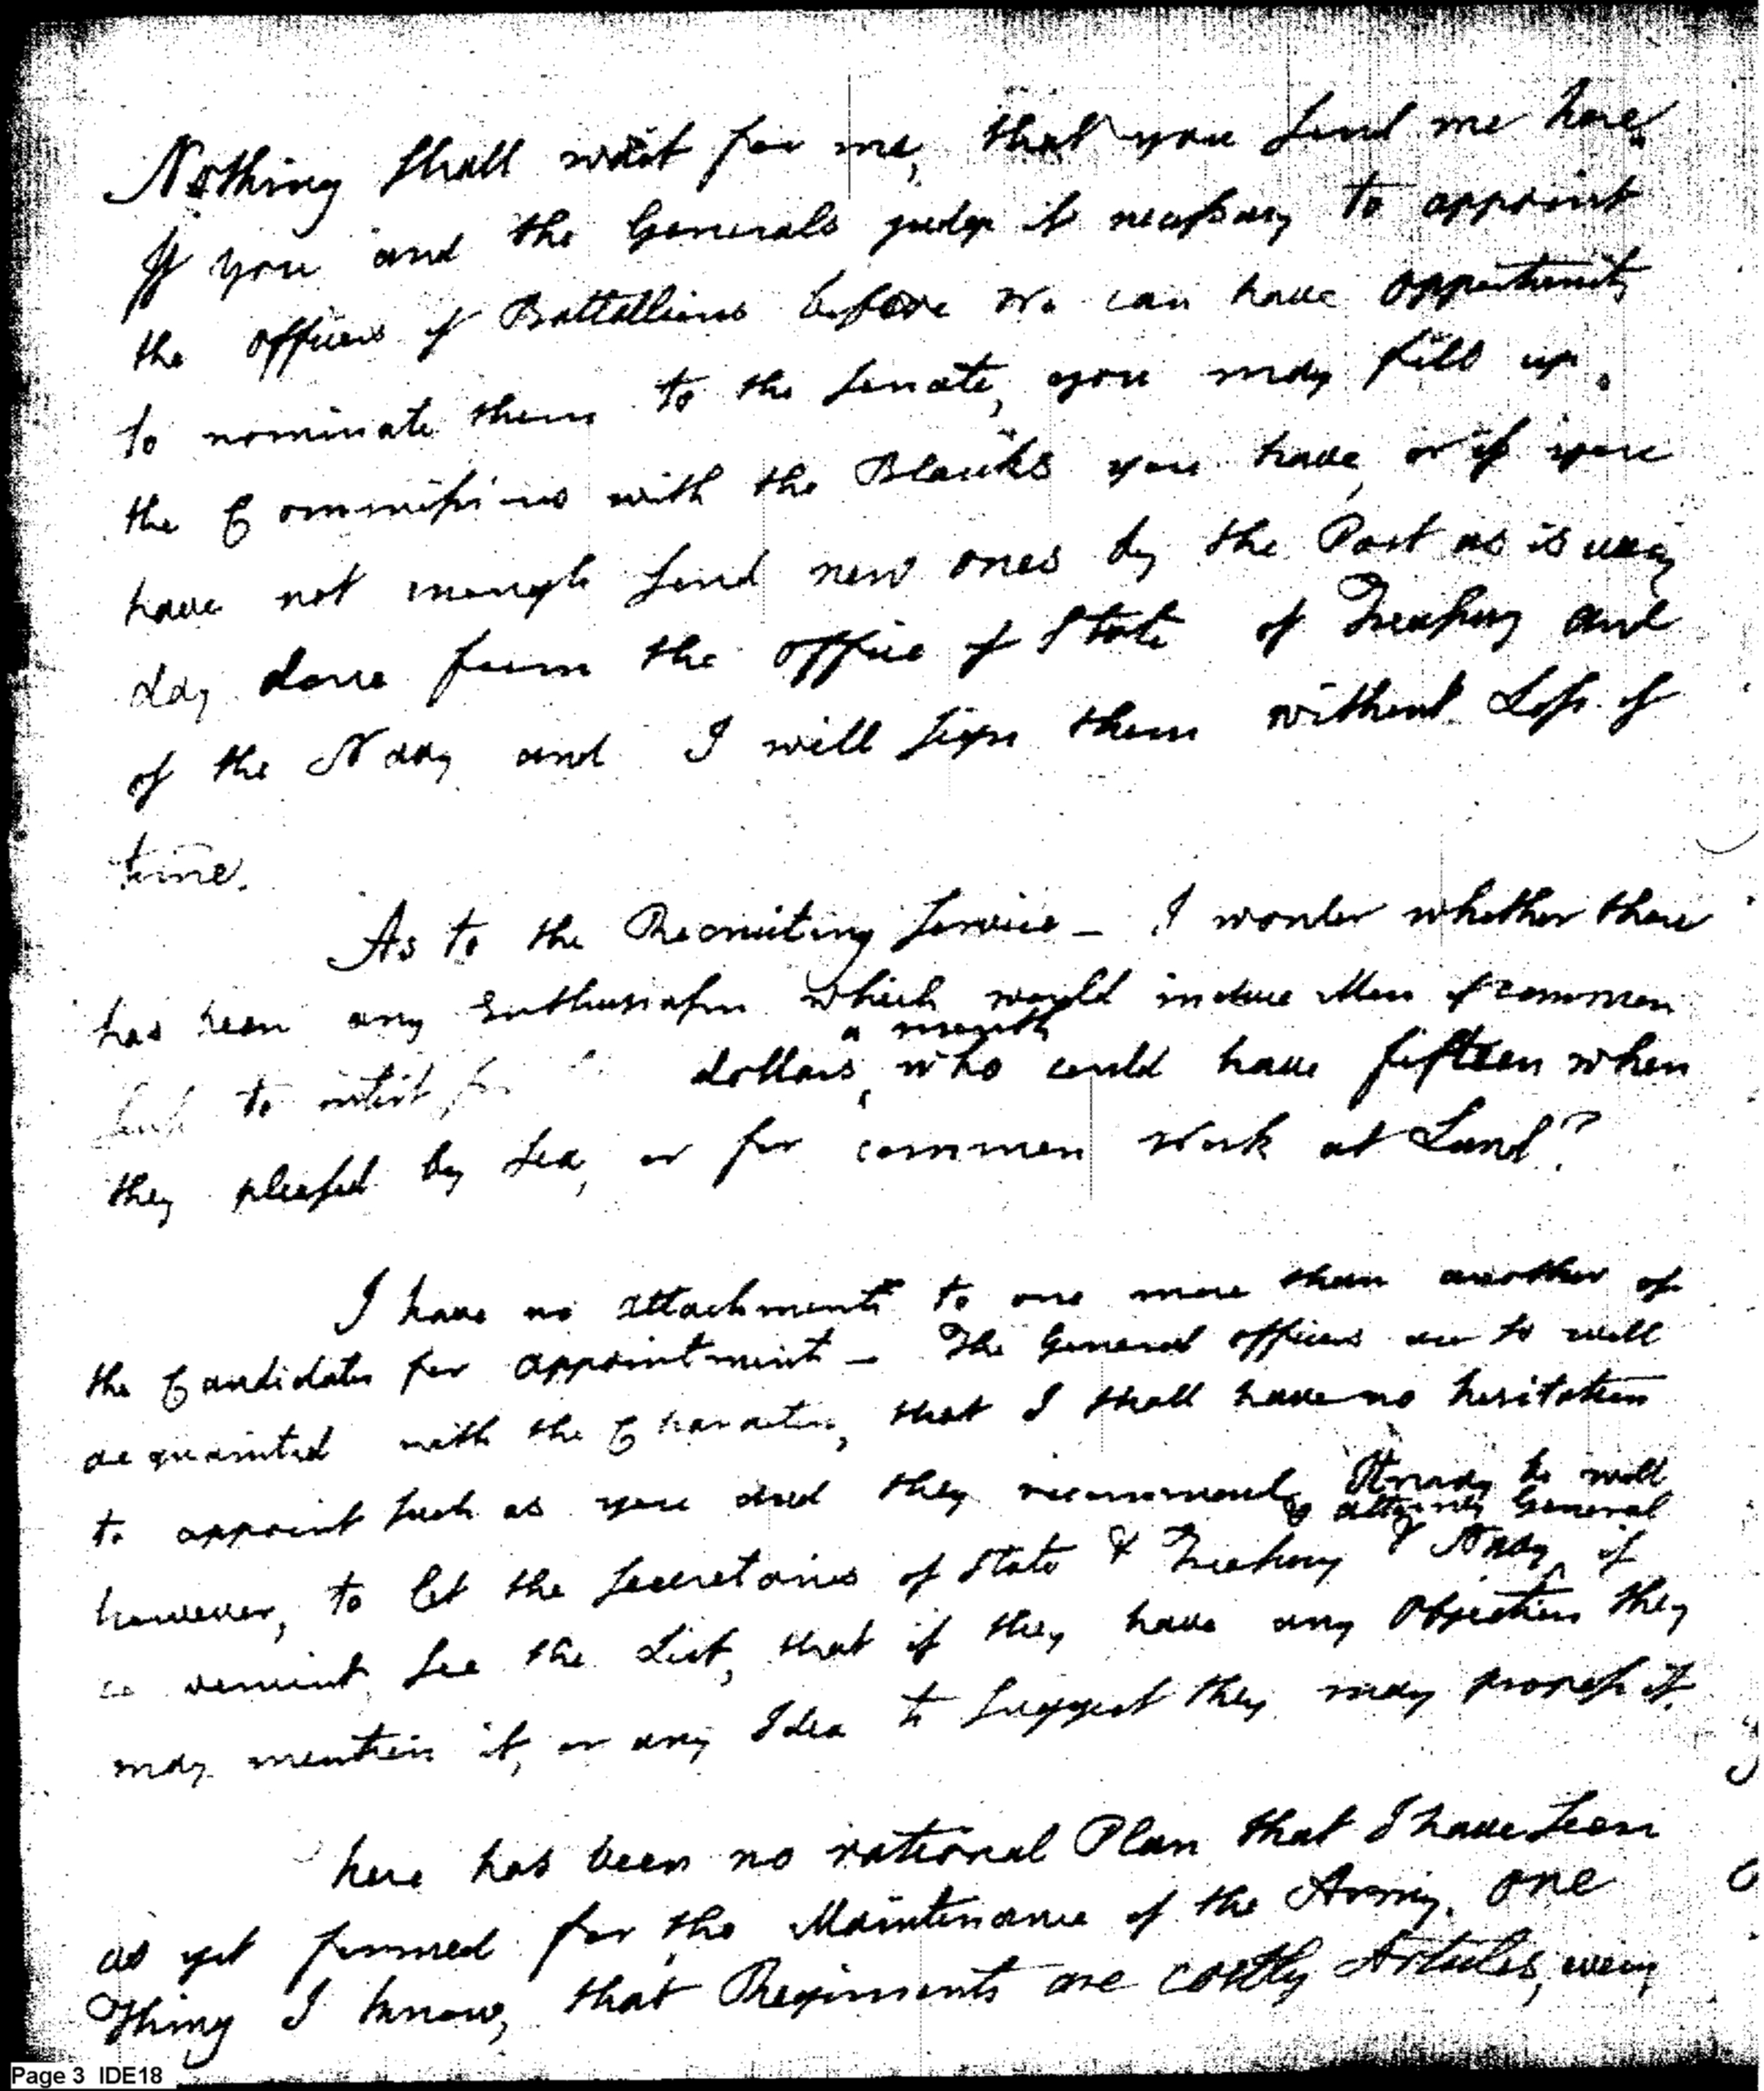 Nothing shall wait for me, that you send me here.
If you and the Generals judge it necessary to appoint
the officers of Battallions before We can have opportunity
to nominate them to the Senate, you may fill up
the Commissions with the Blanks you have, or if you
have not enough send new ones by the Post as is every
day done from the office of State of Treasury and
of the Navy and I will sign them without Loss of
time.
As to the Recruiting Service – I wonder whether there
has been any Enthusiasm which would induce Men of common
a month
to inlist for dollars, who could have fifteen when
they pleased by Sea, or for common Work at Land?
I have no attachments to one more than another of
the Candidates for appointment – The General officers are so well
acquainted with the Characters, that I shall have no hesitation
to appoint such as you and they recommend. It may be well
& attorney General
however, to let the Secretaries of State & Treasury & Navy, if
convenient, see the List, that if they have any objections they
may mention it, or any Idea to suggest they may propose it.
here has been no rational Plan that I have seen
as yet formed for the Maintenance of the Army. One
Thing I know, that Regiments are costly Articles, every
Page 3 IDE18